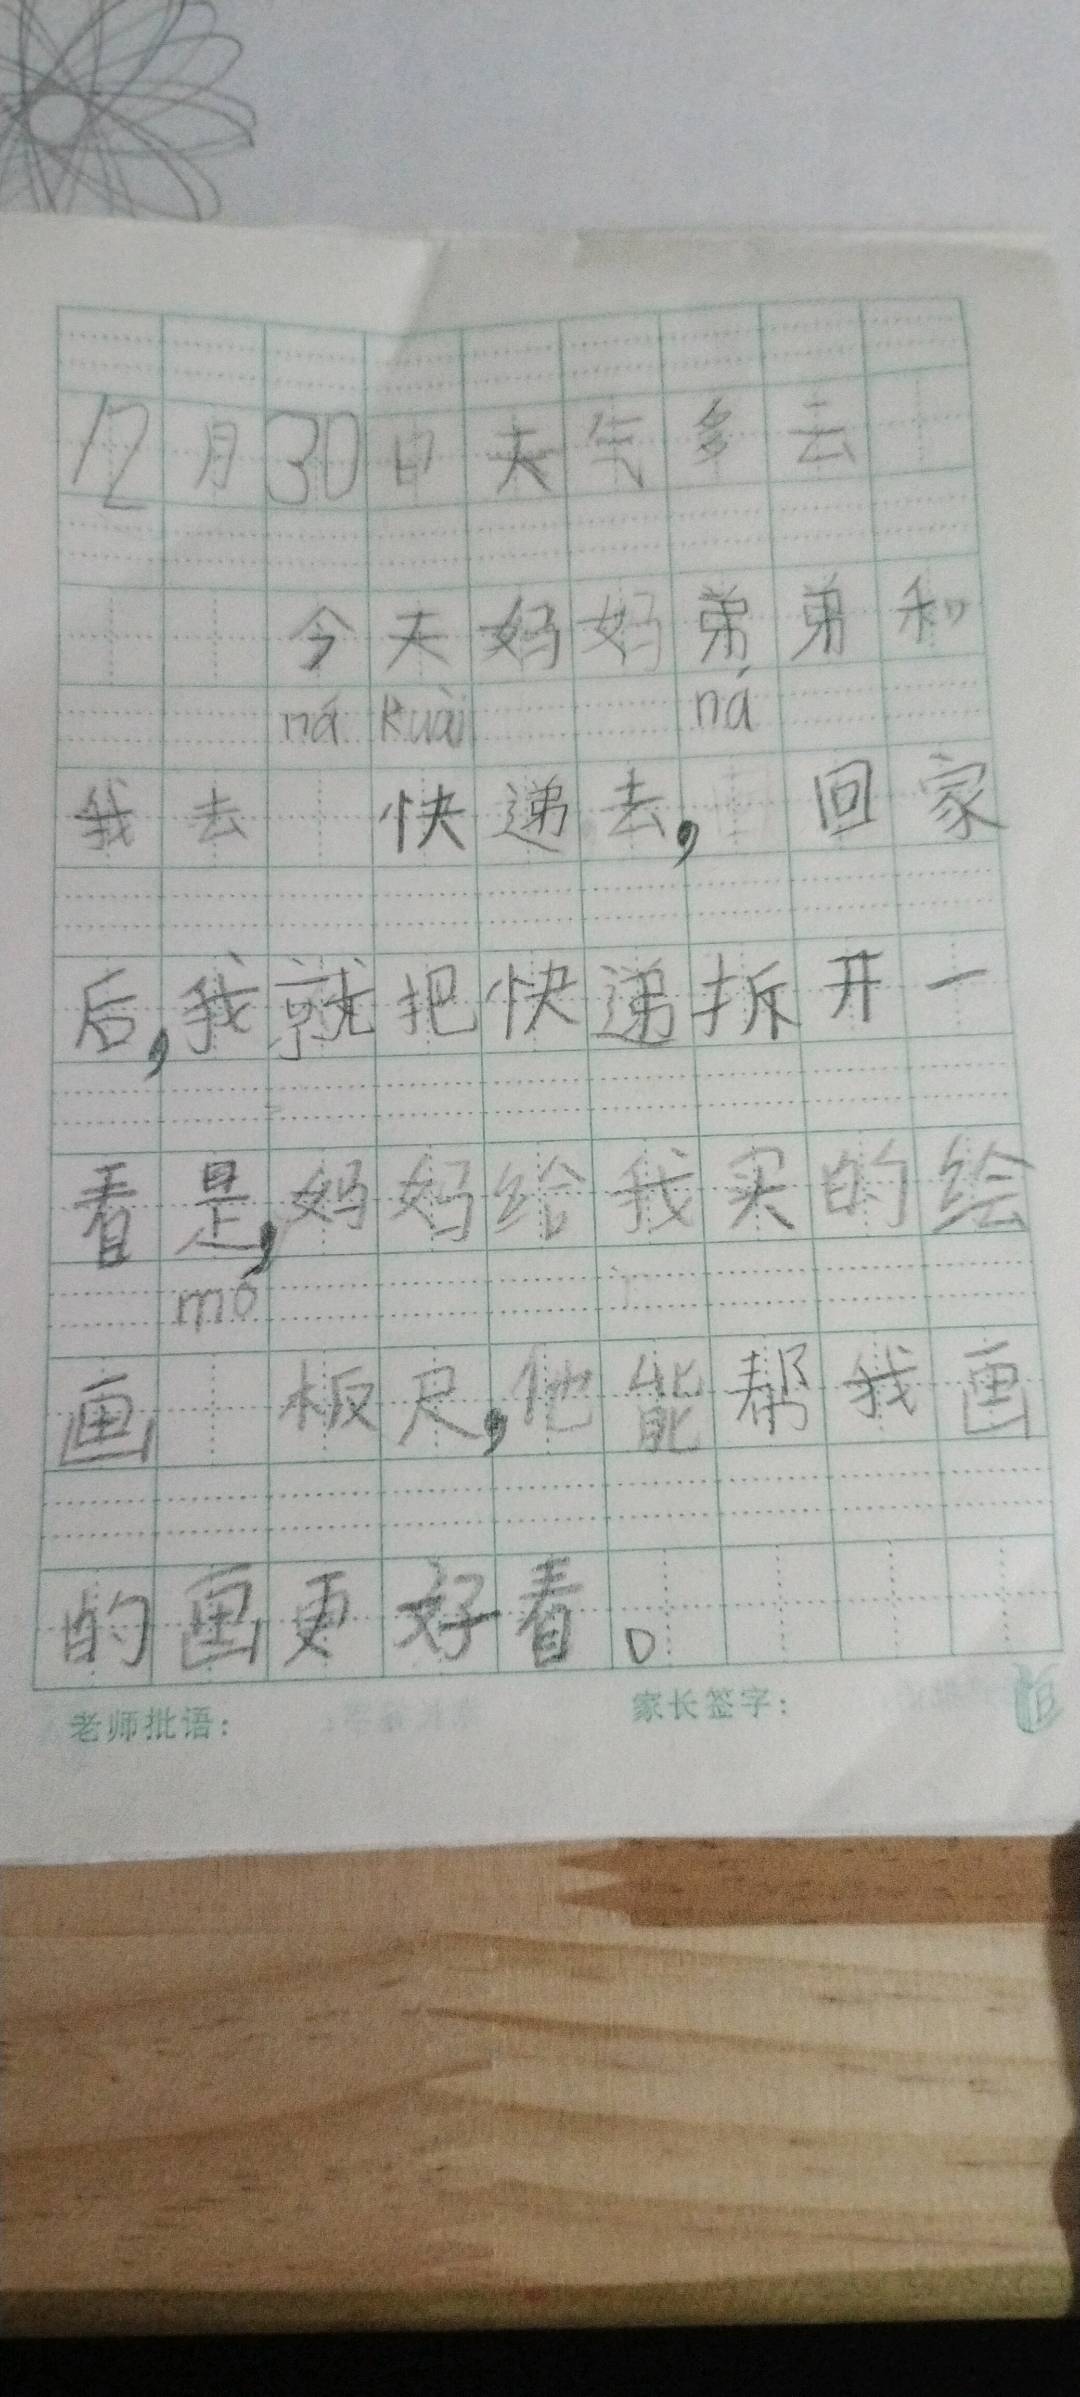 12月30日天气多云
今天妈妈弟弟和
ná kuài ná
我去快递去,回家
后,我就把快递拆开一
看是,妈妈给我买的绘
mó
画板尺,他能帮我画
的画更好看。
老师批语: 家长签字: